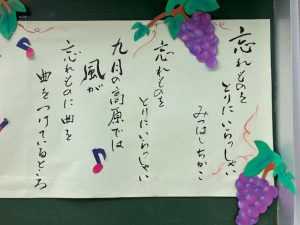 忘れものを
とりにいらっしゃい
みつはしちかこ
忘れものを
とりにいらっしゃい
九月の高原では
風が
忘れものに曲を
曲をつけているところ